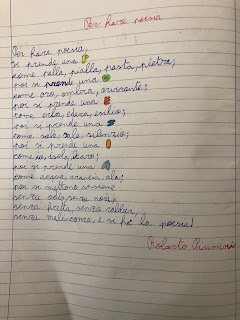 Per fare poesia
Per fare poesia,
si prende una P
come palla, pialla, pasta, pietra;
poi si prende una O
come oro, ombra, orizzonte;
poi si prende una E
come erba, edera, esilio;
poi si prende una S
come sole, sale, silenzio;
poi si prende una I
come io, isola, Icaro;
poi si prende una A
come acqua, arancia, ala;
poi si mettono insieme
senza odio, senza noia,
senza fretta, senza rabbia,
senza malinconia, e si fa la poesia!
Roberto Piumini